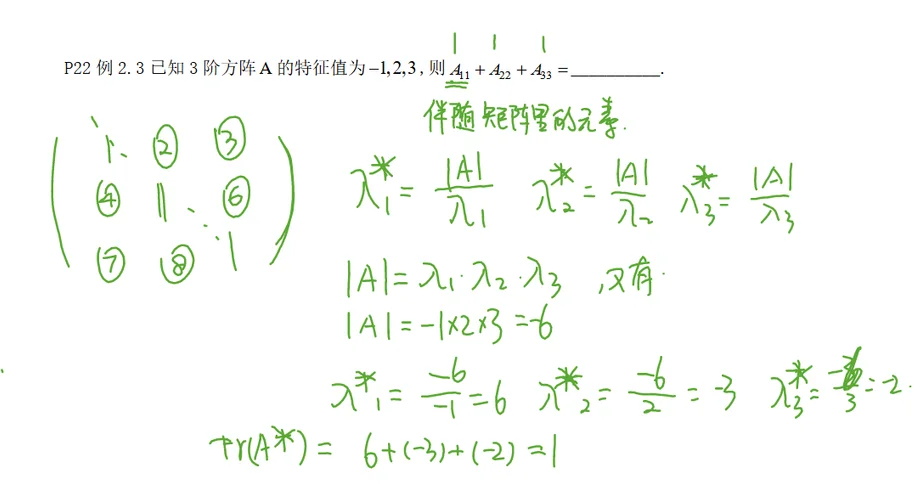 1 1 1
P22 例 2.3 已知 3 阶方阵 A 的特征值为 −1,2,3, 则 A₁₁ + A₂₂ + A₃₃ = __________.
伴随矩阵里的元素.
1 ② ③
④ 1 ⑥
⑦ ⑧ 1
λ₁* = |A|/λ₁ λ₂* = |A|/λ₂ λ₃* = |A|/λ₃
|A| = λ₁·λ₂·λ₃ 又有.
|A| = -1×2×3 = -6
λ*₁ = -6/-1 = 6 λ*₂ = -6/2 = -3 λ*₃ = -6/3 = -2.
tr(A*) = 6+(-3)+(-2) = 1